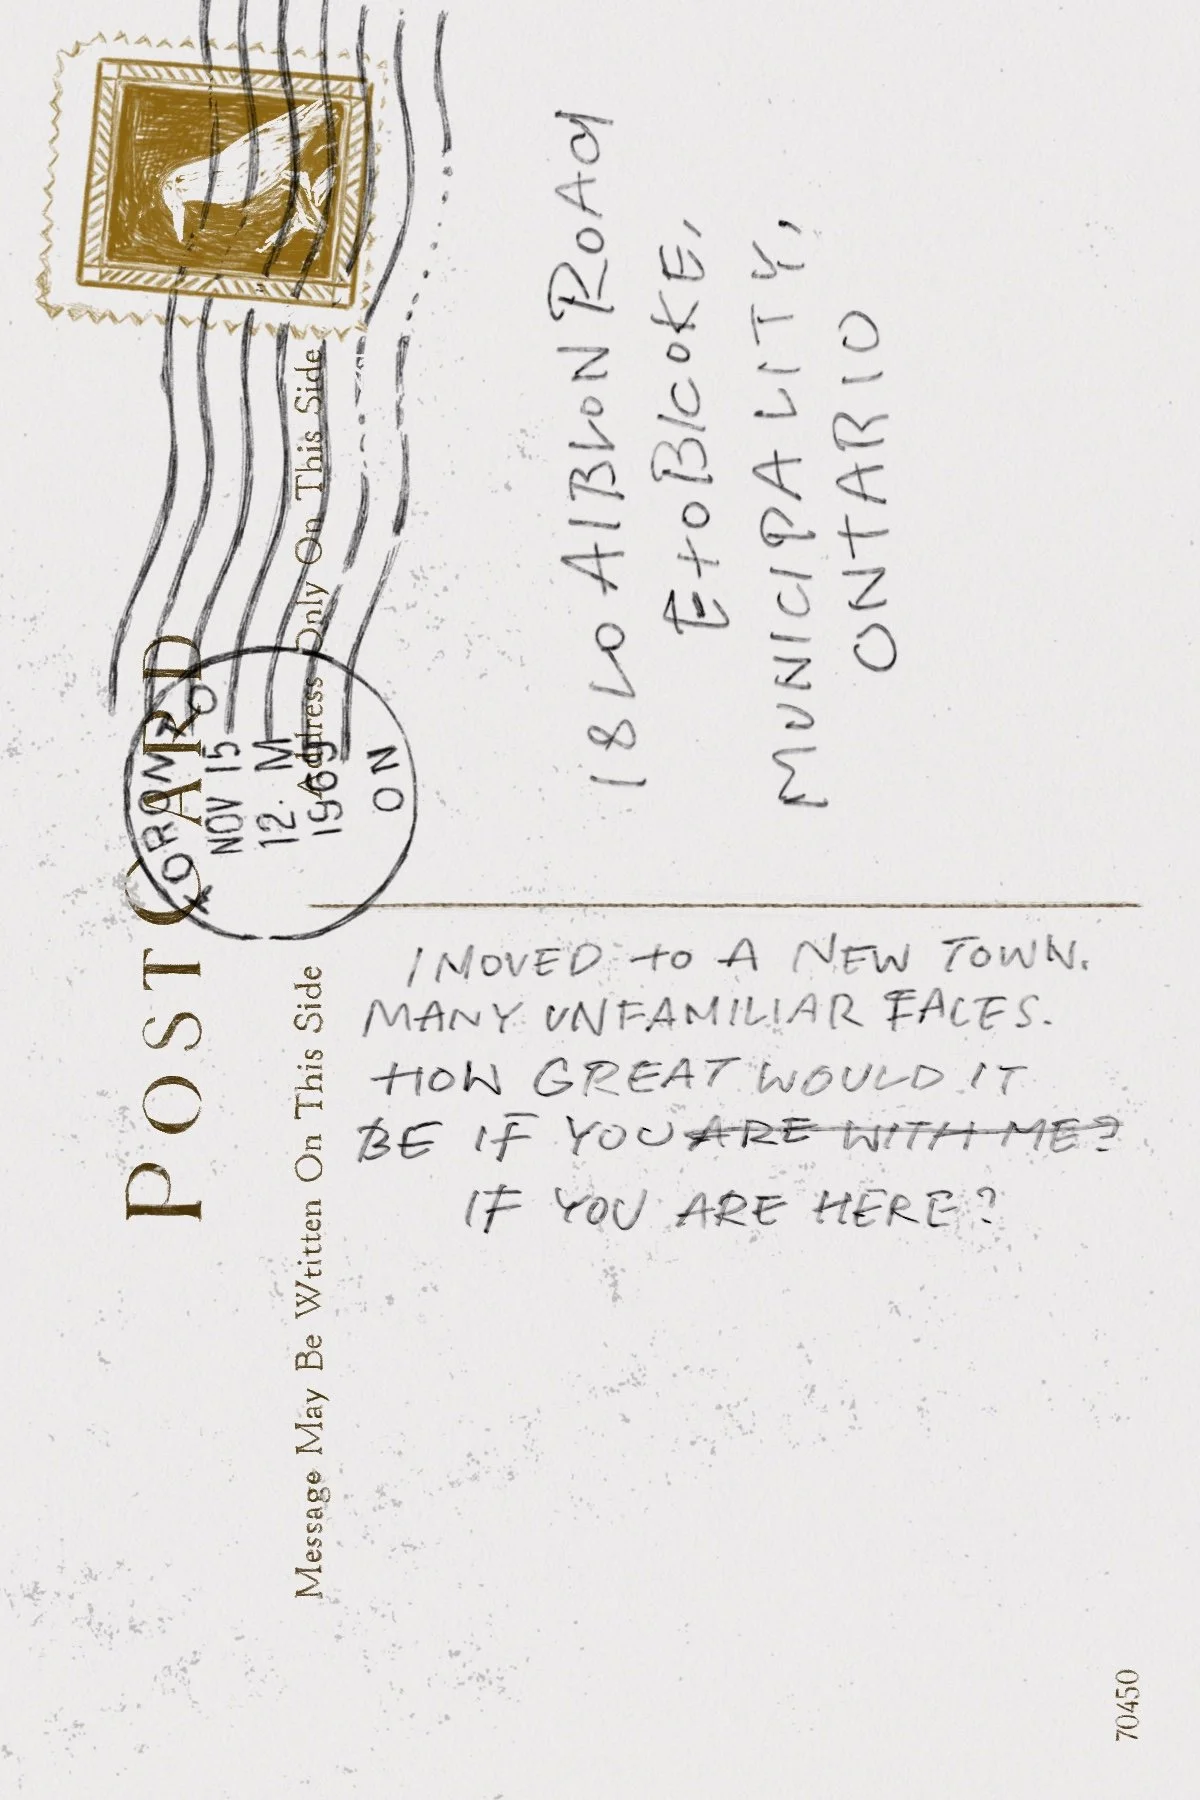 POST CARD
Message May Be Wtitten On This Side
Address Only On This Side
TORONTO
NOV 15
12. M
1969
ON
18LO AlBLON ROAd
EtoBlCOKE,
MUNICIPALITY,
ONTARIO
I MOVED to A NEW TOWN.
MANY UNFAMILIAR FACES.
HOW GREAT WOULD IT
BE IF YOU ARE WITH ME?
IF YOU ARE HERE?
70450